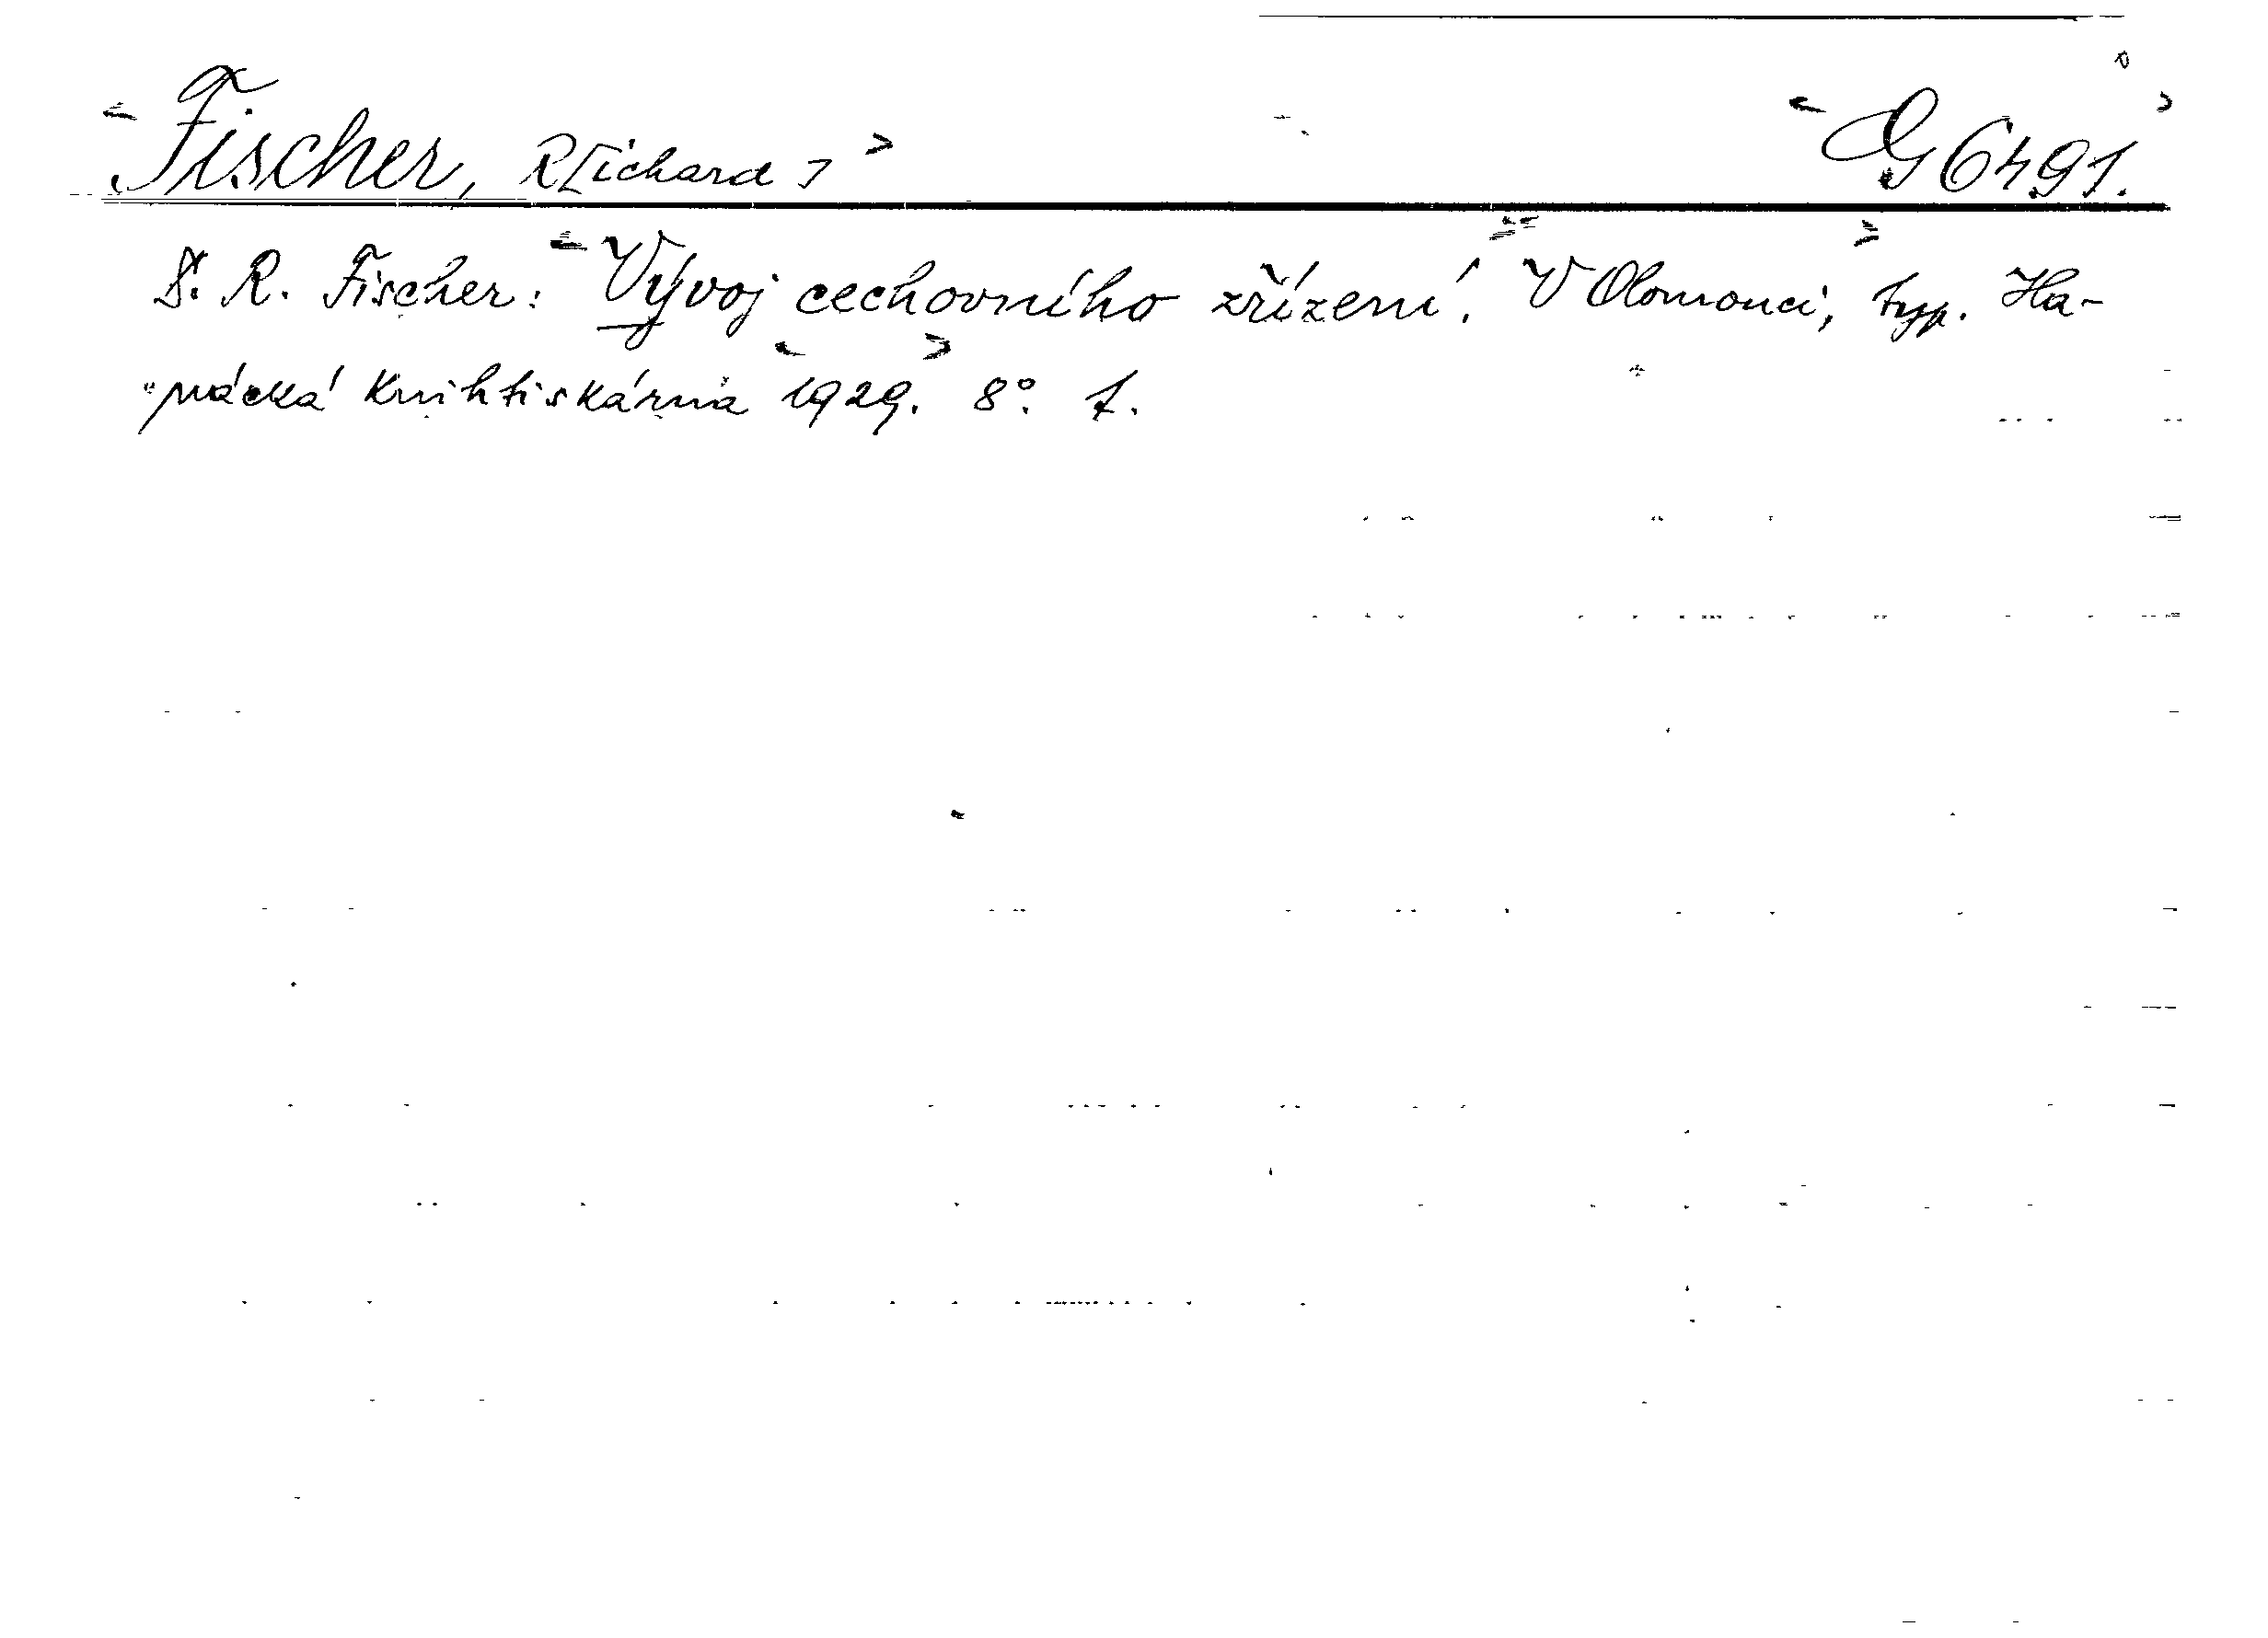 Fischer, R[ichard] G 6491.
D. R. Fischer: Vývoj cechovního zřízení. V Olomouci, typ. Ha-
nácká knihtiskárna 1929. 8°. 1.